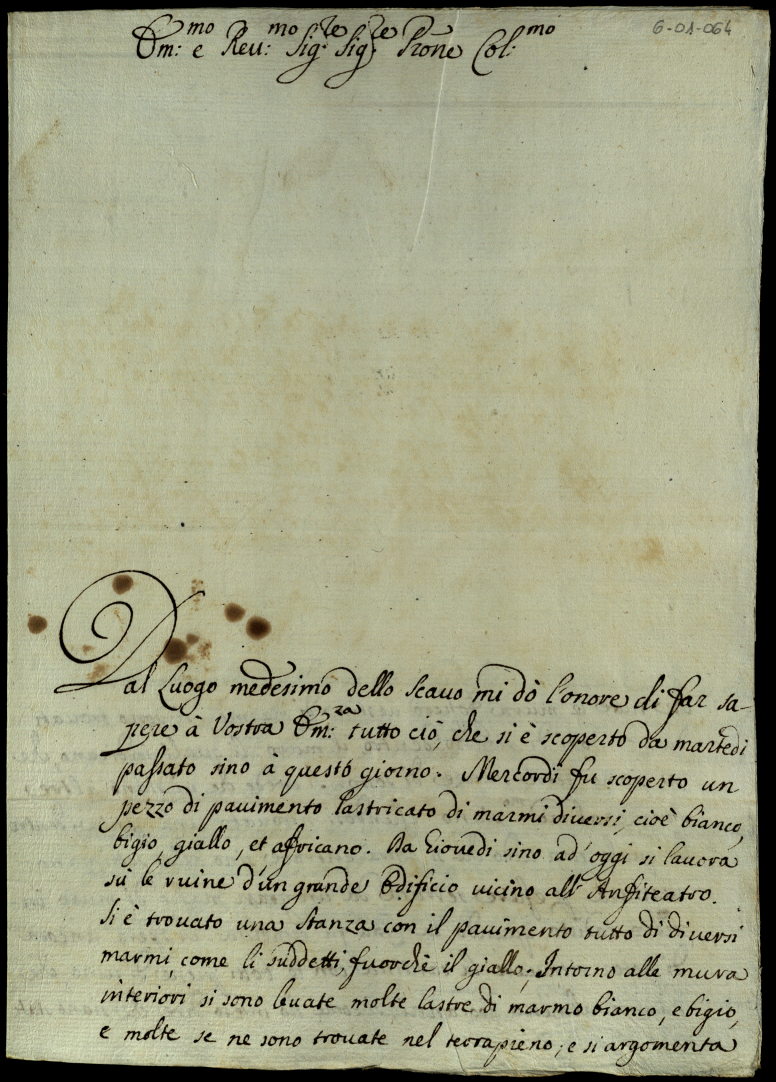 6-01-064
Em:mo e Reu:mo Sig:re Sig:re Prone Col:mo
Dal Luogo medesimo dello scauo mi dò l'onore di far sa-
pere à Vostra Em:za tutto ciò, che si è scoperto da martedì
passato sino à questo giorno. Mercordì fu scoperto un
pezzo di pavimento lastricato di marmi diversi, cioè bianco,
bigio, giallo, et africano. Da Giouedi sino ad' oggi si lauora
sù le ruine d'un grande Edificio vicino all' Anfiteatro.
Si è trouato una stanza con il pavimento tutto di diversi
marmi, come li suddetti, fuorchè il giallo. Intorno alle mura
interiori si sono leuate molte lastre di marmo bianco, e bigio,
e molte se ne sono trouate nel terrapieno; e si argomenta